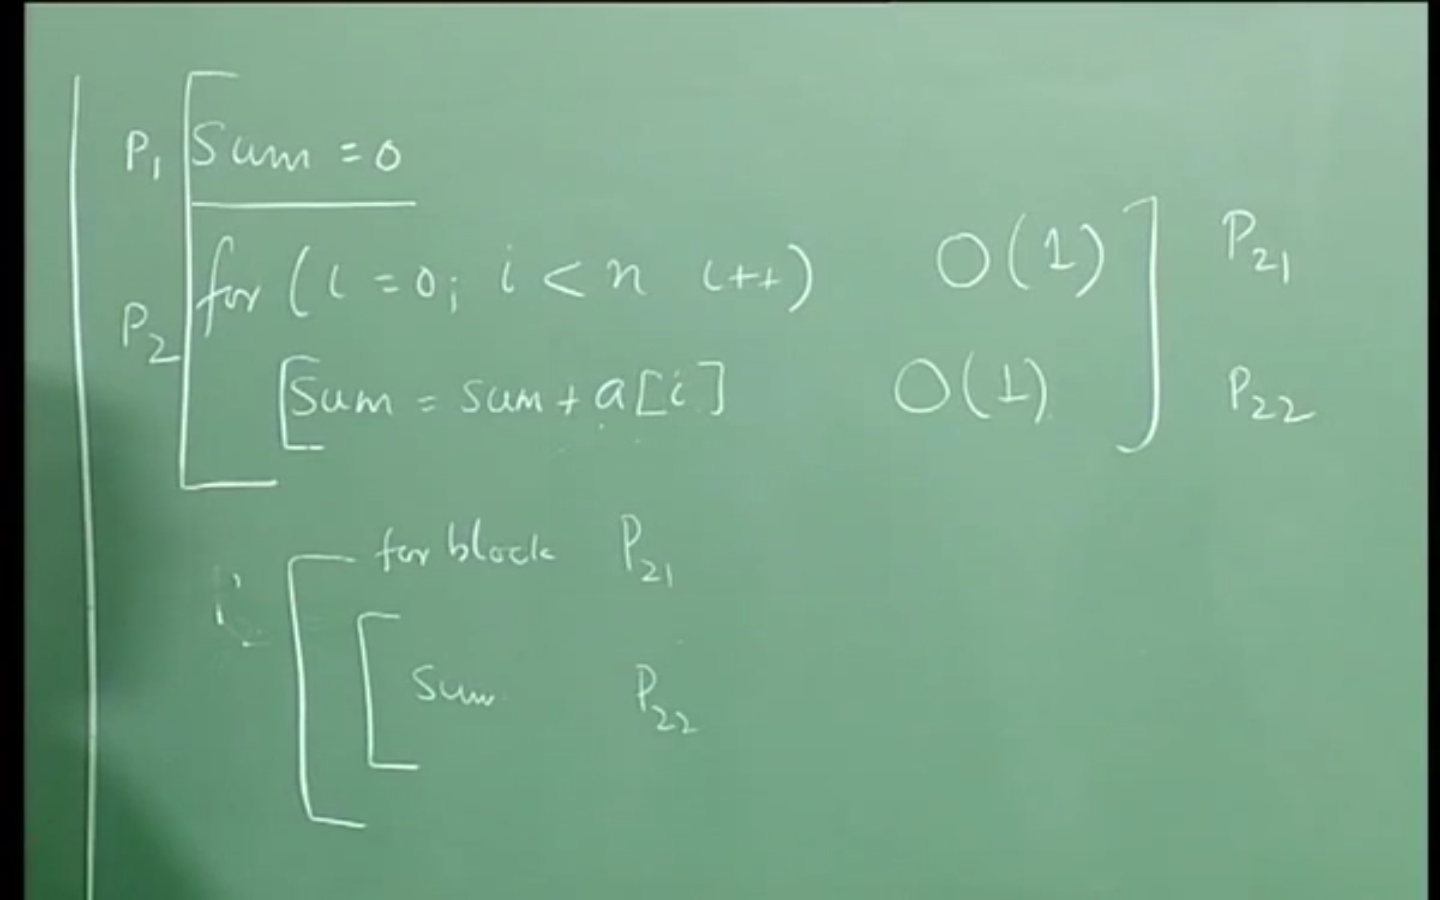 P₁ Sum = 0
P₂ for (i = 0; i < n i++) O(1) P₂₁
Sum = sum + a[i] O(1) P₂₂
for block P₂₁
Sum P₂₂